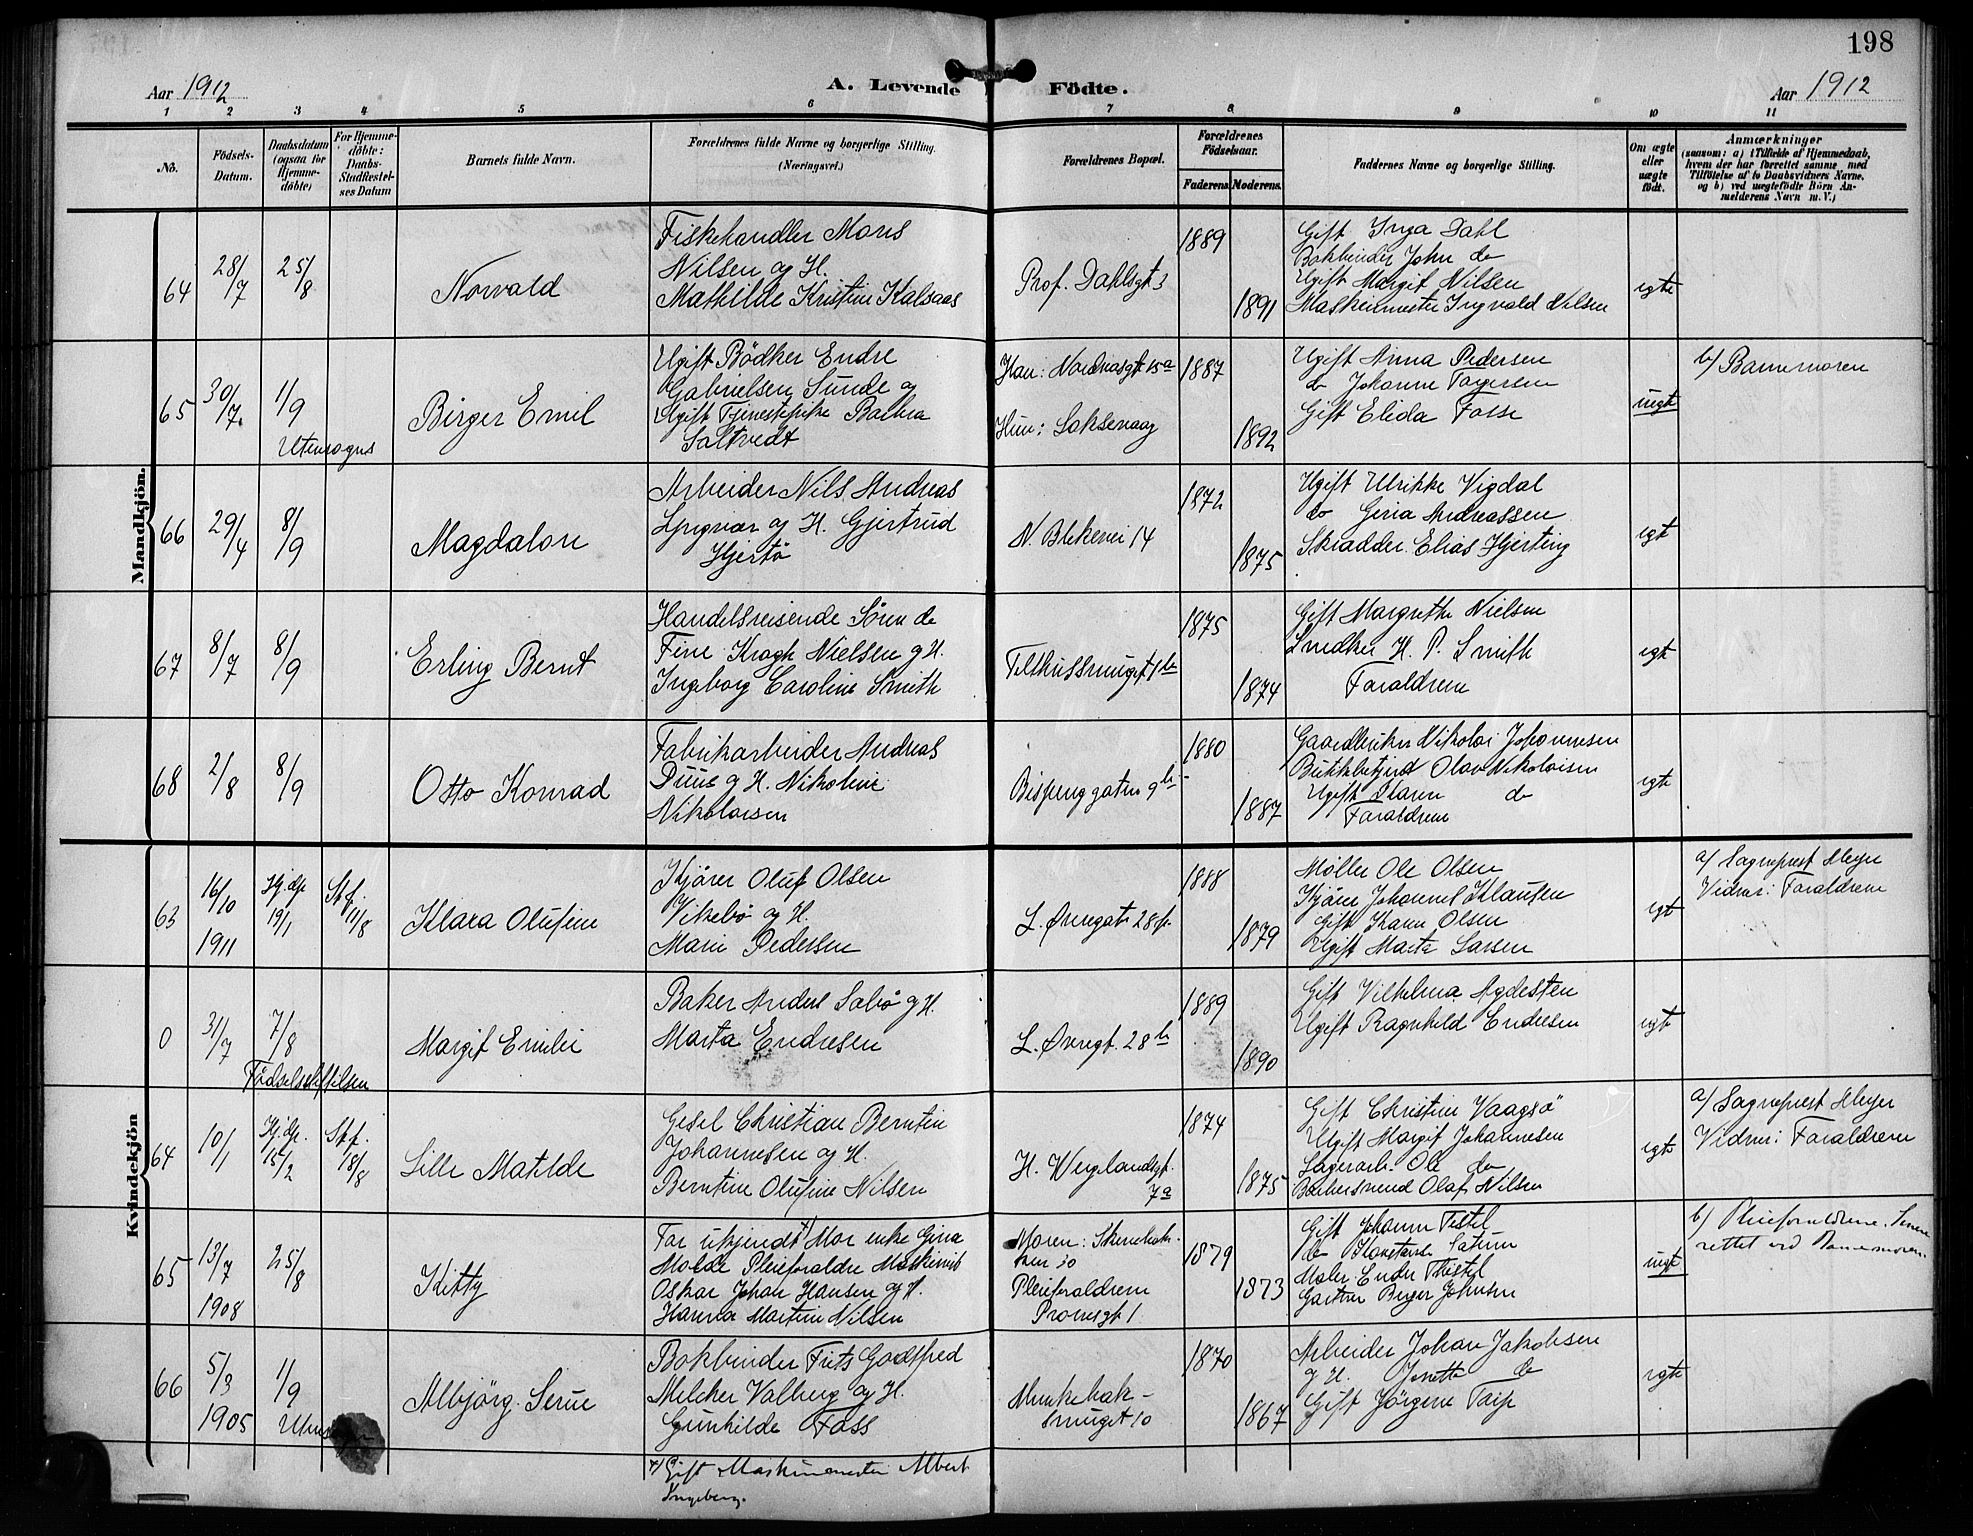 198
Aar 1912
A. Levende Födte.
Aar 1912
1 2 3 4 5 6 7 8 9 10 11
No.
Födsels-
Datum.
Daabsdatum
(ogsaa for
Hjemme-
döbte)
For Hjemme-
döbte:
Daabs-
Stadfæstel-
ses Datum
Barnets fulde Navn.
Forældrenes fulde Navne og borgerlige Stilling.
(Næringsvei.)
Forældrenes Bopæl.
Forældrenes
Födselsaar.
Faderens. Moderens.
Faddernes Navne og borgerlige Stilling.
Om ægte
eller
uægte
födt.
Anmærkninger
(saasom: a) i Tilfælde af Hjemmedaab,
hvem der har forrettet samme med
Tilföielse af to Daabsvidners Navne,
og b) ved uægtefödte Börn An-
melderens Navn m. V.)
Mandkjön.
64
28/7
25/8
Norvald
Fiskehandler Mons
Nilsen og H.
Mathilde Kristine Kalsaas
Prof. Dahlsgt 3
1889
1891
Gift Inga Dahl
Bokbinder John do
Ugift Margit Nilsen
Maskinmester Ingvald Nilsen
egte
65
30/7
1/9
Utensogns
Birger Emil
Ugift Bödker Endre
Gabrielsen Sunde og
Ugift Tjenestepike Barbra
Saltvedt
Han: Nordnæsgt 15a
Hun: Laksevaag
1887
1892
Ugift Anna Pedersen
do Johanne Torgersen
Gift Elida Fosse
uegt
b/ Barnemoren
66
29/4
8/9
Magdalon
Arbeider Nils Andreas
Lyngvær og H. Gjertrud
Hjertö
N. Blekevei 14
1872
1875
Ugift Ulrikke Vigdal
do Gina Andreassen
Skrædder Elias Hjerting
egt
67
8/7
8/9
Erling Bernt
Handelsreisende Sören de
Fine Krogh Nielsen og H.
Ingeborg Caroline Smith
1875
1874
Gift Margrethe Nielsen
Snedker H. P. Smith
Forældrene
egt
68
2/8
8/9
Otto Konrad
Fabrikarbeider Andreas
Duus og H. Nikoline
Nikolaisen
Bispenggaten 9b
1880
1887
Gaardbruker Nikolai Johannesen
Butikbetjent Olav Nikolaisen
Ugift do
Forældrene
egt
Kvindekjön
63
16/10
1911
Hj.dp.
19/1
St.f.
11/8
Klara Olufine
Kjører Oluf Olsen
Vikebø og H.
Marie Pedersen
L. Øvregate 28
1888
1879
Møller Ole Olsen
Kjører Johannes Klausen
Gift Karen Olsen
Ugift Marta Larsen
egt
a/ Sogneprest Meyer
Vidner: Forældrene
0
31/7
7/8
Födselsstiftelsen
Margit Emilie
Baker Anders Sæbö og H.
Marta Endresen
L. Øvregt. 28 b
1889
1890
Gift Vilhelmina Agdesten
Ugift Ragnhild Endresen
egt
64
10/1
Hj.dp.
15/2
St.f.
18/8
Lille Matilde
Gesel Christian Berntin
Johannesen og H.
Berntine Olufine Nilsen
H. Wergelandsgt.
7a
1874
1875
Gift Christine Vaagsö
Ugift Margit Johannesen
Lagerarb. Ole do
Barbersvend Olaf Nilsen
egte
a/ Sogneprest Meyer
Vidner: Forældrene
65
13/7
1908
25/8
Kitty
Far ukjendt x) Mor enke Gina
Molde Pleieforældre Maskinist
Oskar Johan Hansen og H.
Hanna Martine Nilsen
Moren:
Pleieforældrene
1879
1873
Gift Johanne Tistel
do Konstanse
Maler Endre Thistel
Gartner Birger Johnsen
uegt
b/ Pleieforældrene. Senere
rettet ved Barnemoren.
66
5/3
1905
1/9
Albjörg Serine
Bokbinder Frits Godtfred
Melcher Valberg og H.
Gunhilde Foss
Munkebæk-
smuget 10
1870
1867
Arbeider Johan Jakobsen
og H. Jonette do
Gift Jörgine Tarp
egte
x) Gift Maskinmester Albert
Ingeberg.